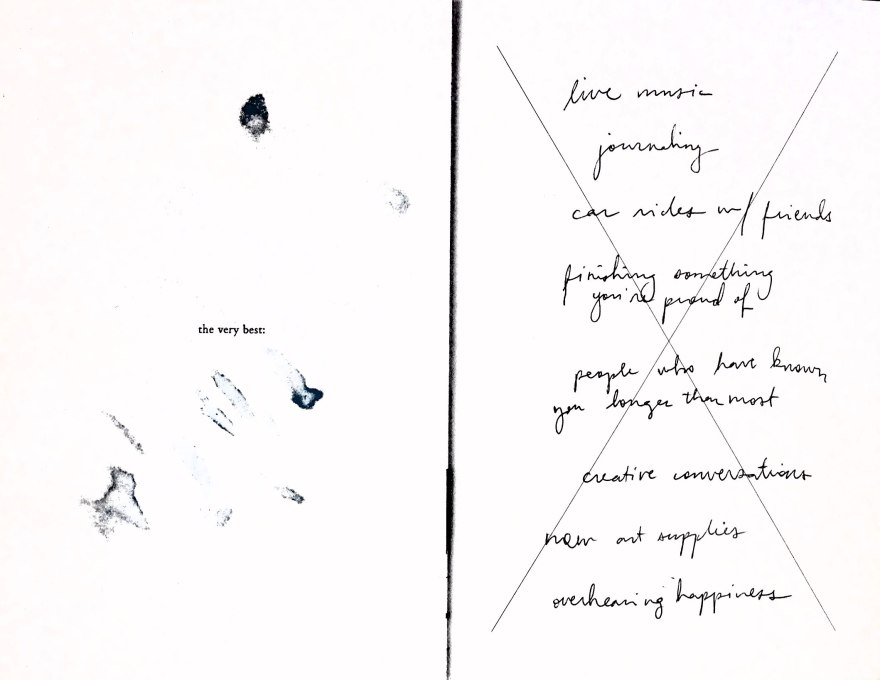 the very best:
live music
journaling
car rides w/ friends
finishing something
you're proud of
people who have known
you longer than most
creative conversations
new art supplies
overhearing happiness